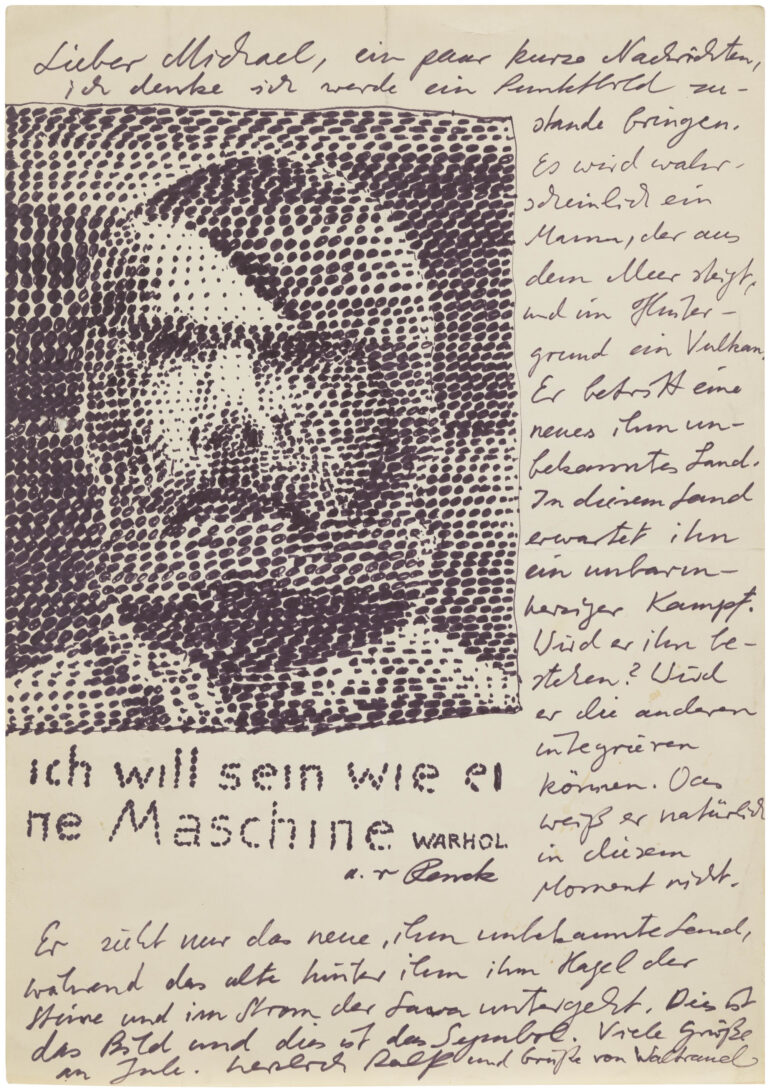 Lieber Michael, ein paar kurze Nachrichten,
ich denke ich werde ein Punktbild zu-
stande bringen.
Es wird wahr-
scheinlich ein
Mann, der aus
dem Meer steigt,
und im Hinter-
grund ein Vulkan.
Er betritt eine
neues ihm un-
bekanntes Land.
In diesem Land
erwartet ihn
ein unbarm-
herziger Kampf.
Wird er ihn be-
stehen? Wird
er die anderen
integrieren
können. Das
weiß er natürlich
in diesem
Moment nicht.
ich will sein wie ei
ne Maschine WARHOL
a. r Penck
Er sieht nur das neue, ihm unbekannte Land,
während das alte hinter ihm ihm Hagel der
Steine und im Strom der Lava untergeht. Dies ist
das Bild und dies ist das Symbol. Viele Grüße
an Jule. Herzlich Ralf und Grüße von Waltraud